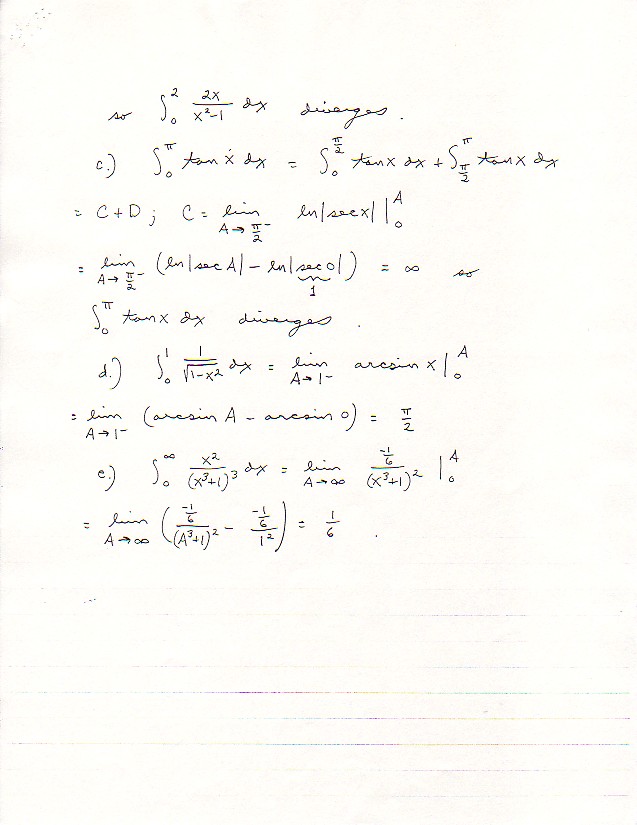 so ∫₀² 2x/(x²-1) dx diverges.
c.) ∫₀^π tan x dx = ∫₀^(π/2) tan x dx + ∫_(π/2)^π tan x dx
= C + D ; C = lim_(A→π/2⁻) ln|sec x| |₀^A
= lim_(A→π/2⁻) (ln|sec A| - ln|sec 0|) = ∞ so
1
∫₀^π tan x dx diverges.
d.) ∫₀¹ 1/√(1-x²) dx = lim_(A→1⁻) arcsin x |₀^A
= lim_(A→1⁻) (arcsin A - arcsin 0) = π/2
e.) ∫₀^∞ x²/(x³+1)³ dx = lim_(A→∞) (-1/6)/(x³+1)² |₀^A
= lim_(A→∞) ((-1/6)/(A³+1)² - (-1/6)/1²) = 1/6 .